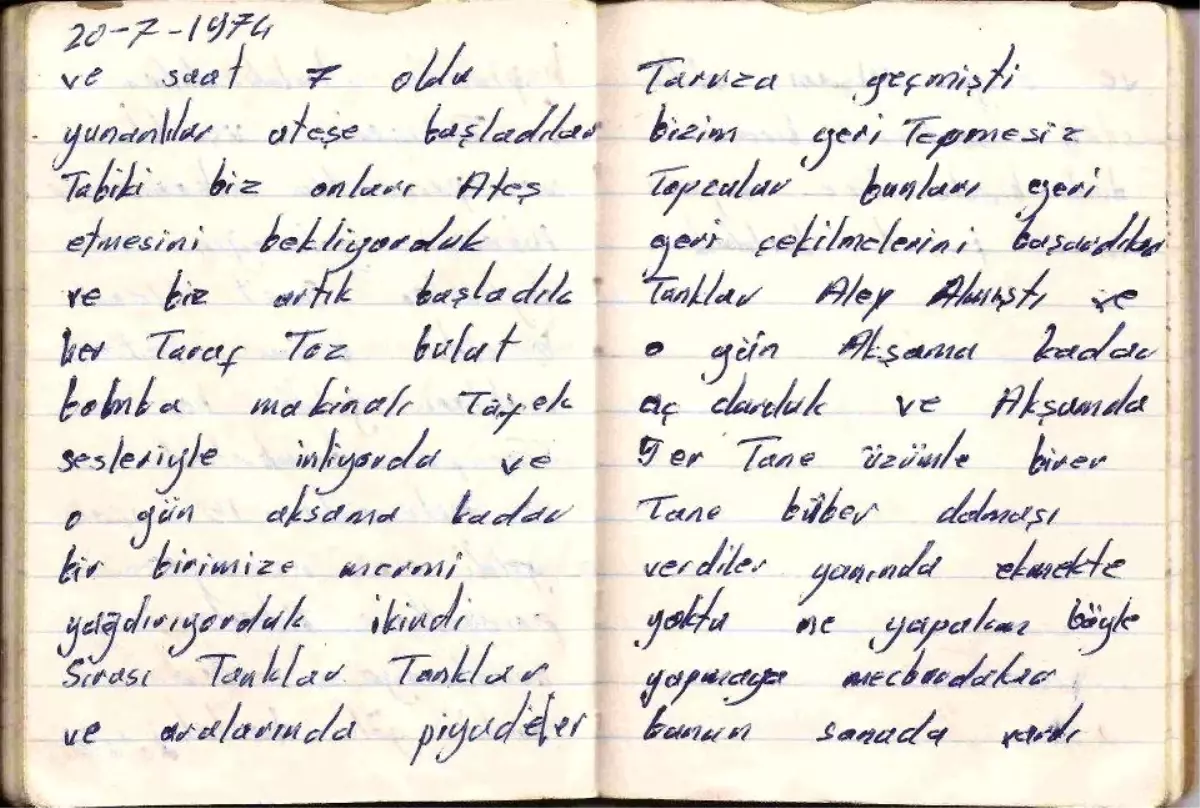 20-7-1974
ve saat 7 oldu
yunanlılar ateşe başladılar
Tabiki biz onları Ateş
etmesini bekliyorduk
ve biz artık başladık
her Taraf Toz bulut
bomba makinalı Tüfek
sesleriyle inliyordu ve
o gün aksama kadar
bir birimize mermi
yağdırıyorduk ikindi
Sırası Tanklar Tanklar
ve aralarında piyadeler
Taruza geçmişti
bizim geri Tepmesiz
Topcular bunları geri
geri çekilmelerini başardılar
Tanklar Alev Almıştı ve
o gün Akşama kadar
aç durduk ve Akşamda
5er Tane üzümle birer
Tane büber dolması
verdiler yanında ekmekte
yoktu ne yapalım böyle
yapmaya mecburdular
bunun sonuda vardı